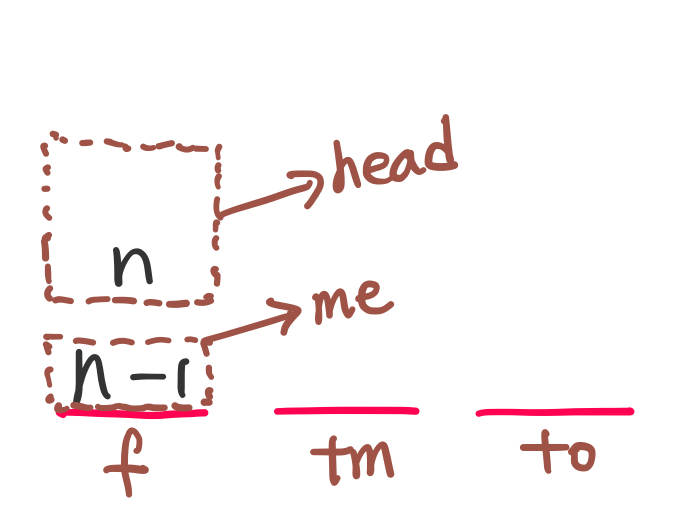 head
n
me
n-1
f tm to